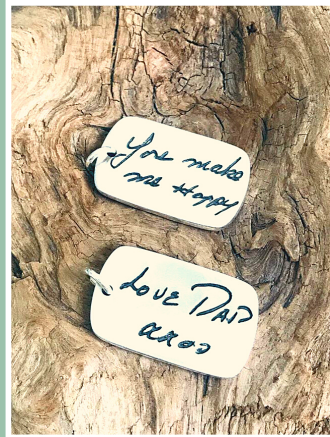 You make
me Happy
Love DAD
xxoo